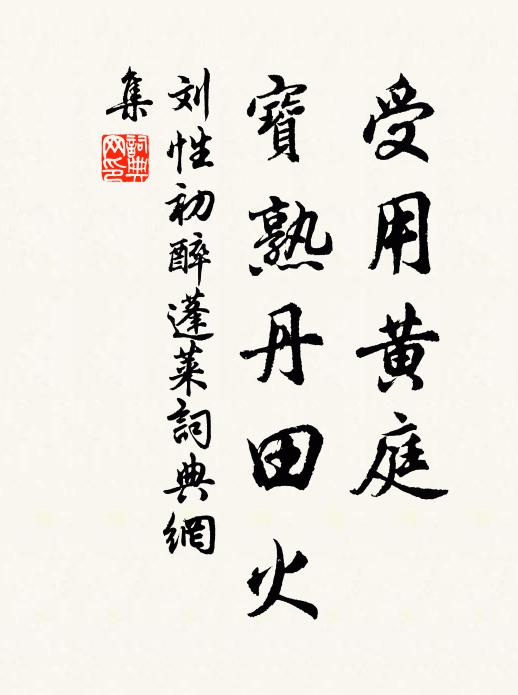 受用黄庭
寶熟丹田火
刘性初醉蓬莱詞典網
集
詞典網印